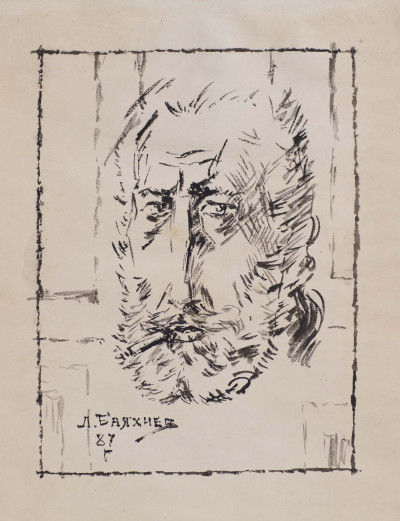 Л. БАЯХЧЕВ
87
Г